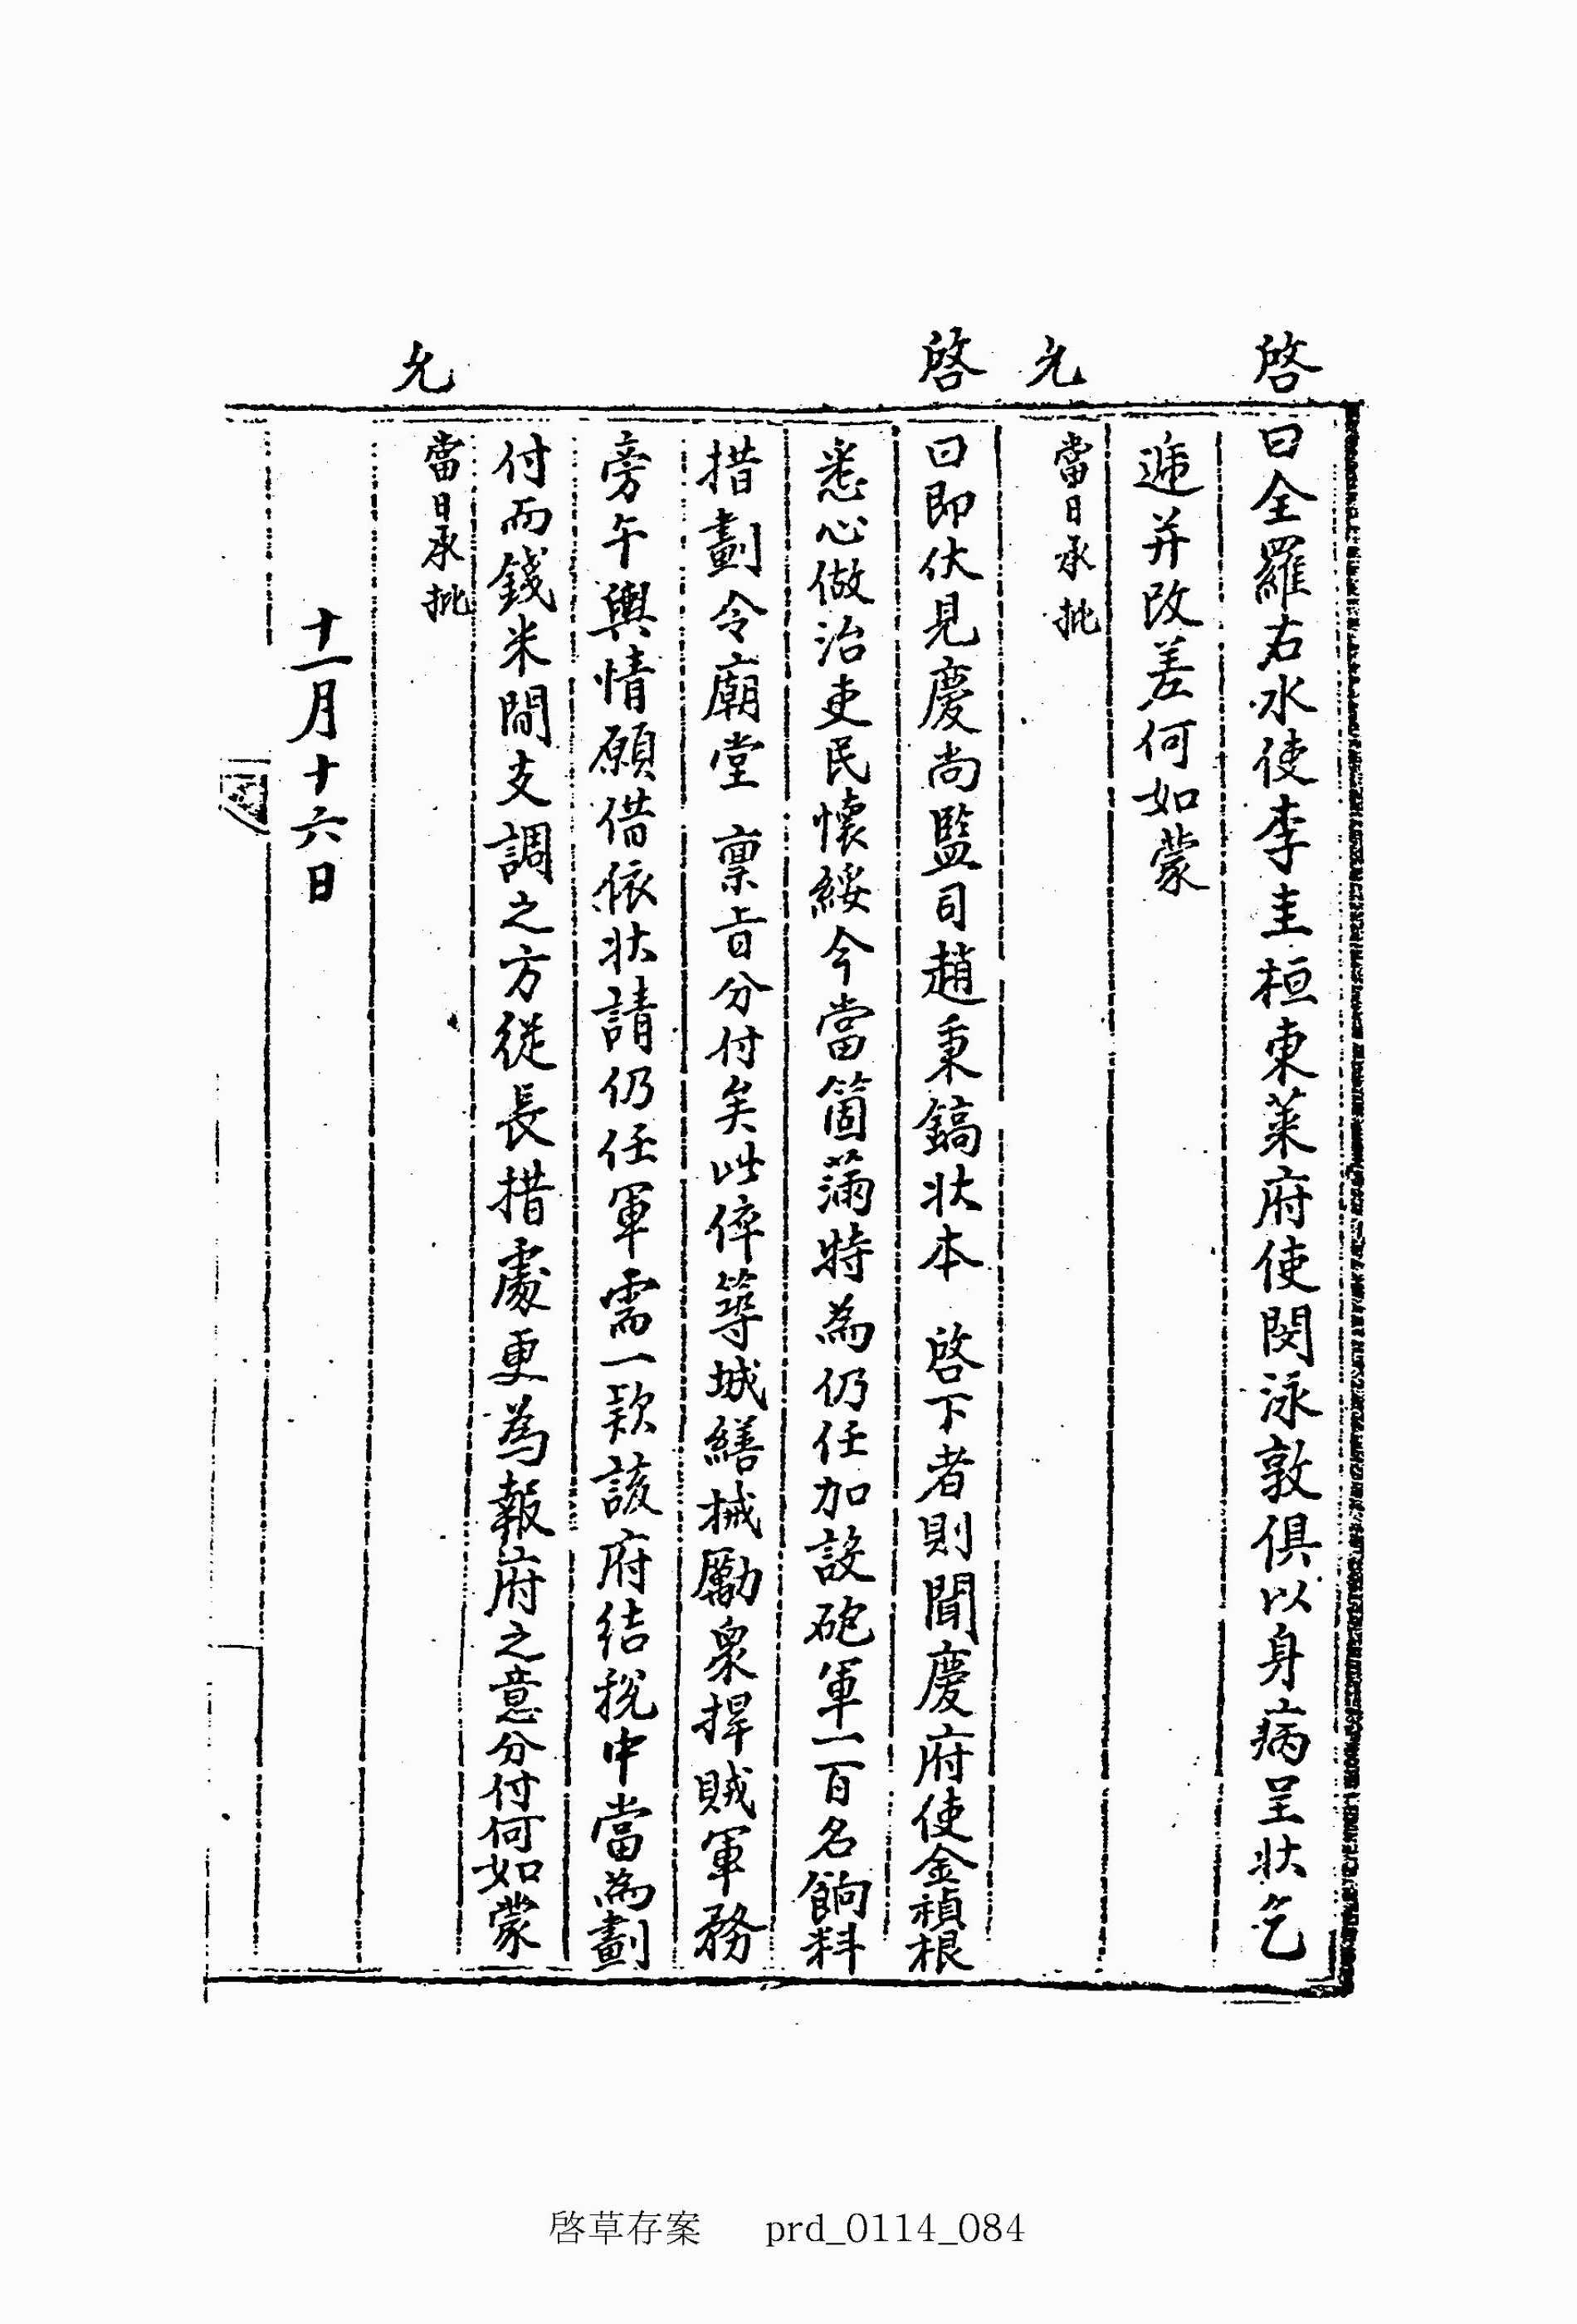 啓曰全羅右水使李圭桓東萊府使閔泳敦俱以身病呈狀乞
遞并改差何如蒙
允當日承批
啓曰卽伏見慶尙監司趙秉鎬狀本 啓下者則聞慶府使金禎根
悉心做治吏民懷綏今當箇滿特爲仍任加設砲軍一百名餉料
措劃令廟堂 稟旨分付矣此倅築城繕械勵衆捍賊軍務
旁午輿情願借依狀請仍任軍需一款該府結稅中當爲劃
付而錢米間支調之方從長措處更爲報府之意分付何如蒙
允當日承批
十一月十六日
啓草存案 prd_0114_084